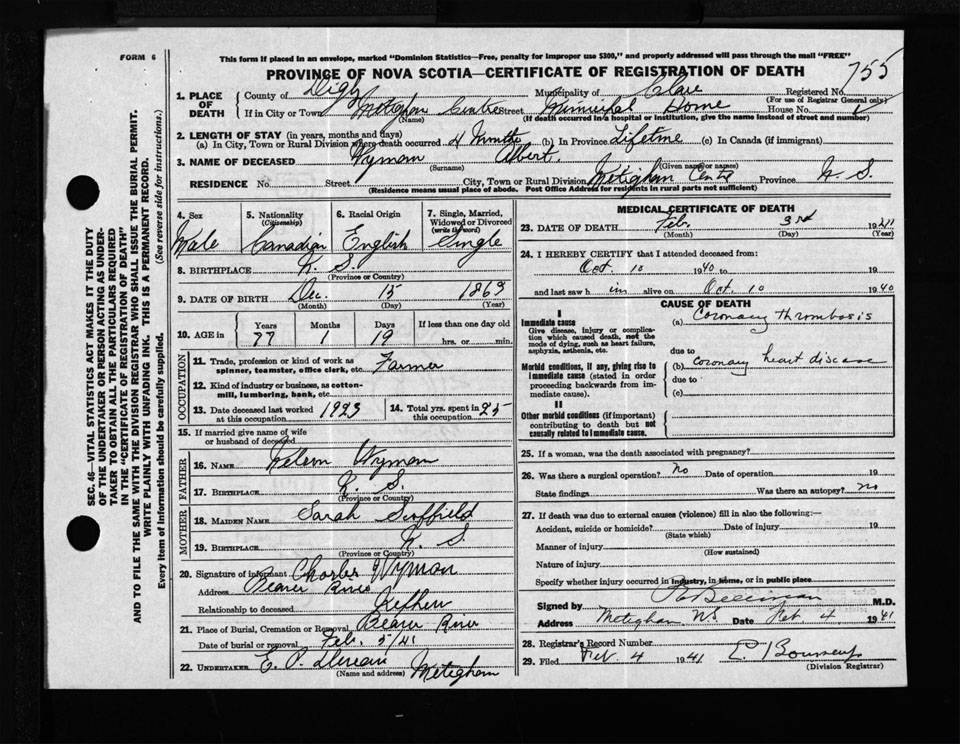 FORM 6
This form if placed in an envelope, marked "Dominion Statistics—Free, penalty for improper use $300," and properly addressed will pass through the mail "FREE"
PROVINCE OF NOVA SCOTIA—CERTIFICATE OF REGISTRATION OF DEATH
755
SEC. 46—VITAL STATISTICS ACT MAKES IT THE DUTY
OF THE UNDERTAKER OR PERSON ACTING AS UNDER-
TAKER TO OBTAIN ALL THE PARTICULARS REQUIRED
IN THE "CERTIFICATE OF REGISTRATION OF DEATH"
AND TO FILE THE SAME WITH THE DIVISION REGISTRAR WHO SHALL ISSUE THE BURIAL PERMIT.
WRITE PLAINLY WITH UNFADING INK. THIS IS A PERMANENT RECORD.
Every item of information should be carefully supplied. (See reverse side for instructions.)
1. PLACE OF DEATH County of Digby Municipality of Clare Registered No.
(For use of Registrar General only)
If in City or Town Meteghan Centre Street Municipal Home House No.
(Name) (If death occurred in a hospital or institution, give the name instead of street and number)
2. LENGTH OF STAY (in years, months and days)
(a) In City, Town or Rural Division where death occurred 4 Months (b) In Province Lifetime (c) In Canada (if immigrant)
3. NAME OF DECEASED Wyman Albert.
(Surname) (Given name or names)
RESIDENCE No. Street City, Town or Rural Division Meteghan Centre Province N S.
(Residence means usual place of abode. Post Office Address for residents in rural parts not sufficient)
4. Sex 5. Nationality (Citizenship) 6. Racial Origin 7. Single, Married, Widowed or Divorced (write the word)
Male Canadian English Single
8. BIRTHPLACE N. S.
(Province or Country)
9. DATE OF BIRTH Dec. 15 1863
(Month) (Day) (Year)
10. AGE in Years Months Days If less than one day old
77 1 19 hrs. or min.
OCCUPATION
11. Trade, profession or kind of work as spinner, teamster, office clerk, etc. Farmer
12. Kind of industry or business, as cotton-mill, lumbering, bank, etc.
13. Date deceased last worked at this occupation 1923 14. Total yrs. spent in this occupation 25
15. If married give name of wife or husband of deceased
FATHER
16. NAME Nelson Wyman
17. BIRTHPLACE N. S.
(Province or Country)
MOTHER
18. MAIDEN NAME Sarah Scoffield
19. BIRTHPLACE N. S.
(Province or Country)
20. Signature of informant Charles Wyman
Address Beaver River
Relationship to deceased Nephew
21. Place of Burial, Cremation or Removal Beaver River
Date of burial or removal Feb. 5/41
22. UNDERTAKER E. P. Meteghan
(Name and address)
MEDICAL CERTIFICATE OF DEATH
23. DATE OF DEATH Feb. 3rd 1941
(Month) (Day) (Year)
24. I HEREBY CERTIFY that I attended deceased from:
Oct. 10 1940 to 19
and last saw h im alive on Oct. 10 1940
CAUSE OF DEATH
I
Immediate cause (a) Coronary thrombosis
Give disease, injury or complication which caused death, not the mode of dying, such as heart failure, asphyxia, asthenia, etc.
due to
Morbid conditions, if any, giving rise to immediate cause (stated in order proceeding backwards from immediate cause).
(b) Coronary heart disease
due to
(c)
II
Other morbid conditions (if important) contributing to death but not causally related to immediate cause.
25. If a woman, was the death associated with pregnancy?
26. Was there a surgical operation? No Date of operation 19
State findings Was there an autopsy? no
27. If death was due to external causes (violence) fill in also the following:—
Accident, suicide or homicide? Date of injury 19
(State which)
Manner of injury
(How sustained)
Nature of injury
Specify whether injury occurred in industry, in home, or in public place
Signed by M.D.
Address Meteghan N.S. Date Feb. 4 1941
28. Registrar's Record Number
29. Filed Feb. 4 1941
(Division Registrar)